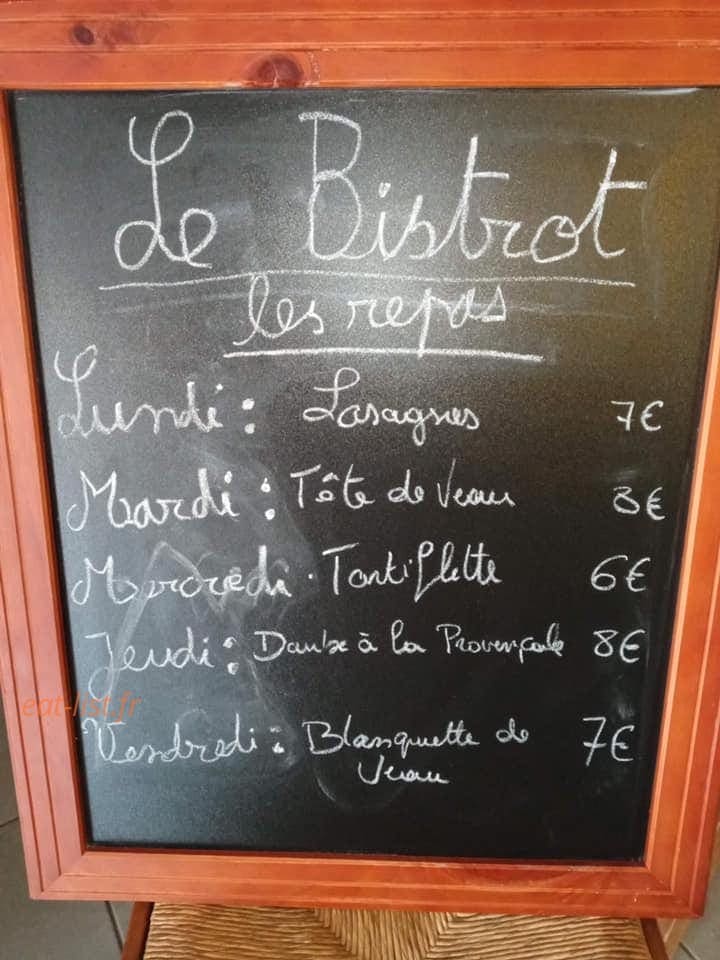 Le Bistrot
les repas
Lundi : Lasagnes 7€
Mardi : Tête de Veau 8€
Mercredi . Tartiflette 6€
Jeudi : Daube à la Provençale 8€
eat-list.fr
Vendredi : Blanquette de 7€
Veau